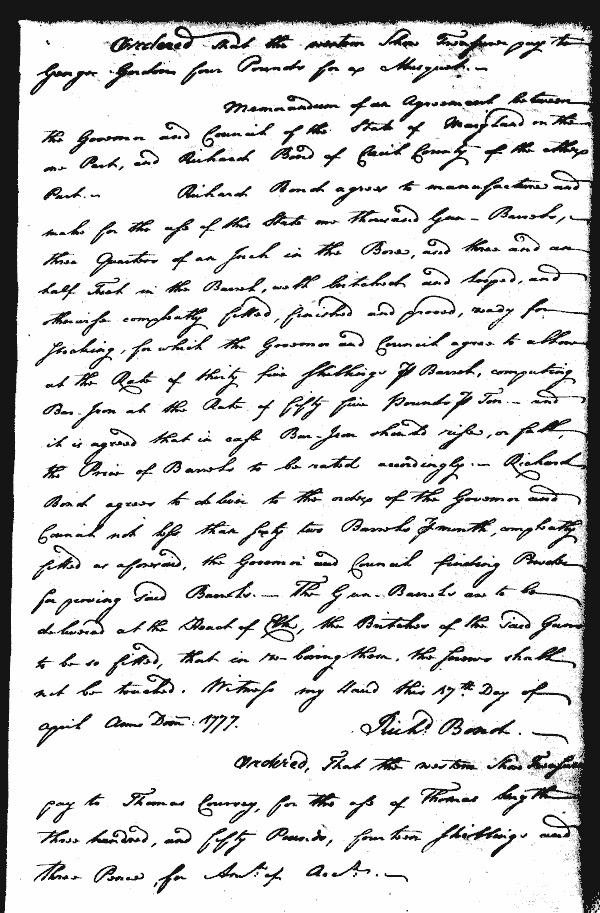 Ordered that the western Shore Treasurer pay to
George Gordon four Pounds for a Musquet. —
Memorandum of an Agreement between
the Governor and Council of the State of Maryland on the
one Part, and Richard Bond of Cæcil County of the other
Part. — Richard Bond agrees to manufacture and
make for the use of this State one thousand Gun-Barrels,
three Quarters of an Inch in the Bore, and three and an
half Feet in the Barrel, well britched and looped, and
otherwise compleatly fitted, finished and proved, ready for
stocking, for which the Governor and Council agree to allow
at the Rate of thirty five Shillings ⅌ Barrel, computing
Bar-Iron at the Rate of fifty five Pounds ⅌ Ton — and
it is agreed that in case Bar-Iron should rise, or fall,
the Price of Barrels to be rated accordingly. — Richard
Bond agrees to deliver to the order of the Governor and
Council not less than sixty two Barrels ⅌ month, compleatly
fitted as aforesaid, the Governor and Council finding Powder
for proving said Barrels. — The Gun-Barrels are to be
delivered at the Head of Elk, the Britches of the said Guns
to be so fitted, that in new boring them, the screws shall
not be touched. Witness my Hand this 17th. Day of
april Anno Dom: 1777. Richd. Bond.
Ordered, That the western Shore Treasurer
pay to Thomas Courcey, for the use of Thomas
three hundred, and fifty Pounds, fourteen Shillings and
three Pence, for Amt. of Acct. —